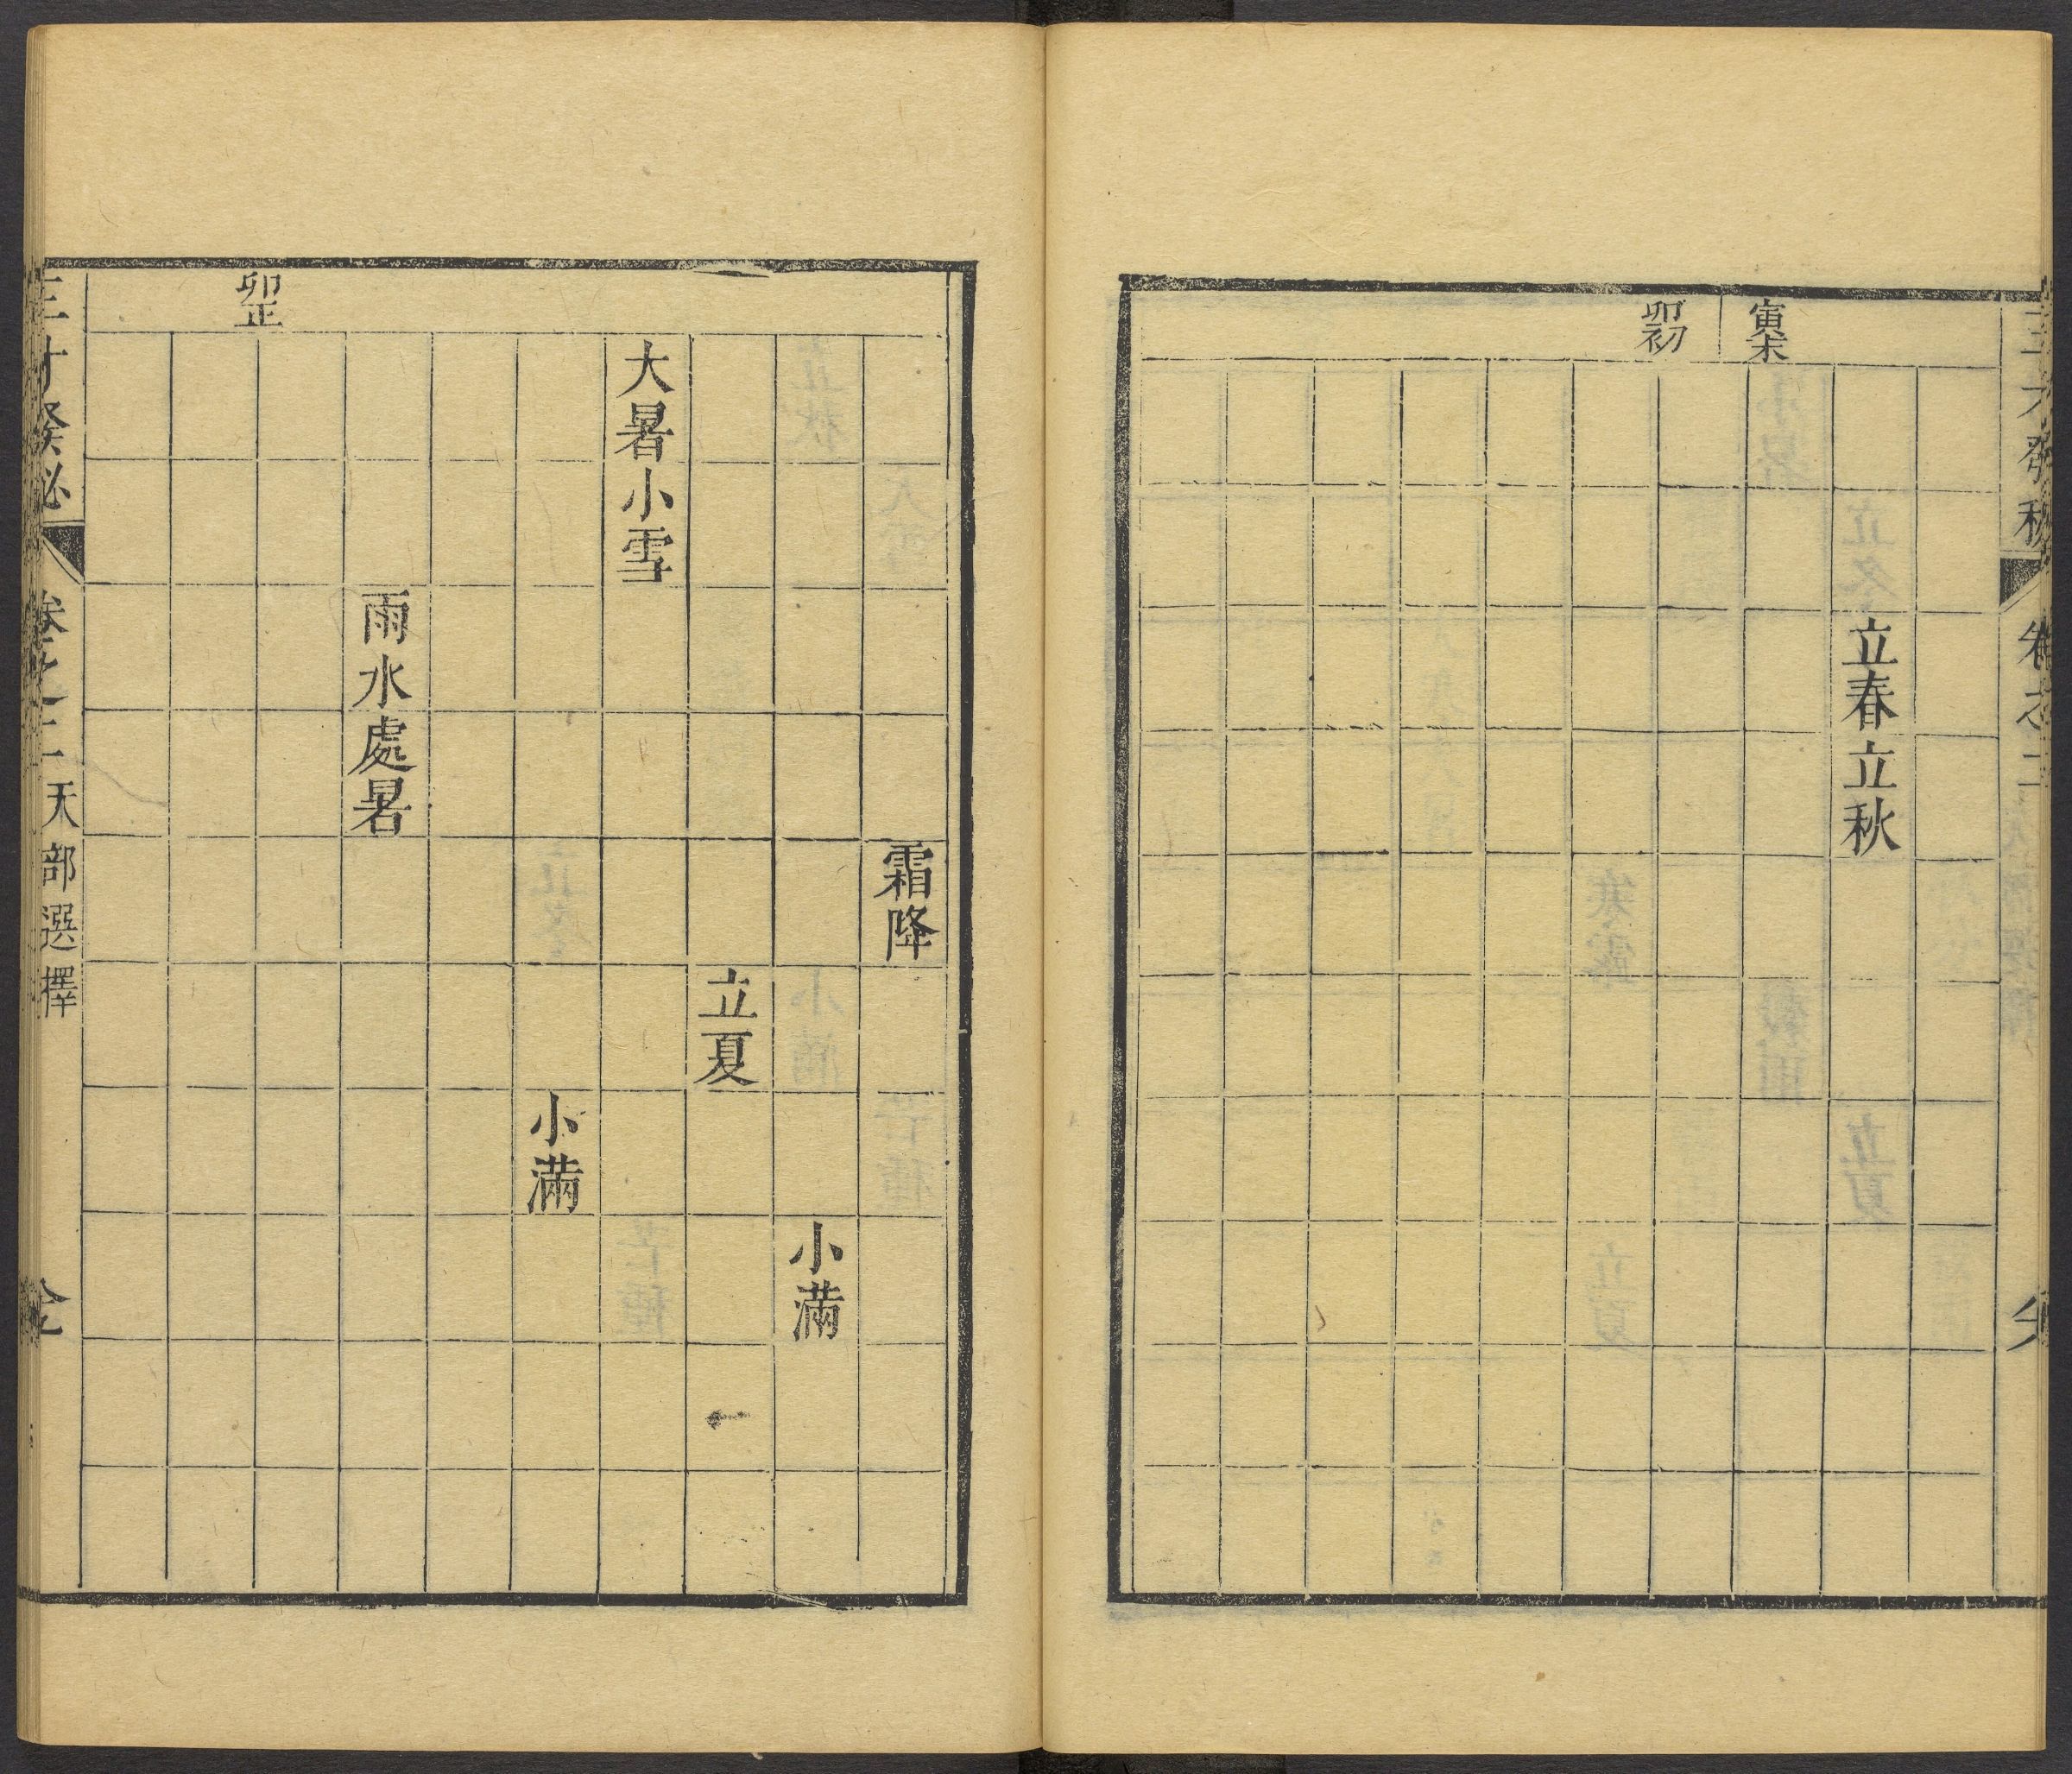 三才發秘 卷之二
寅末
卯初
立春立秋
霜降
小滿
立夏
大暑小雪
小滿
雨水處暑
卯正
三才發秘 卷之二 天部選擇